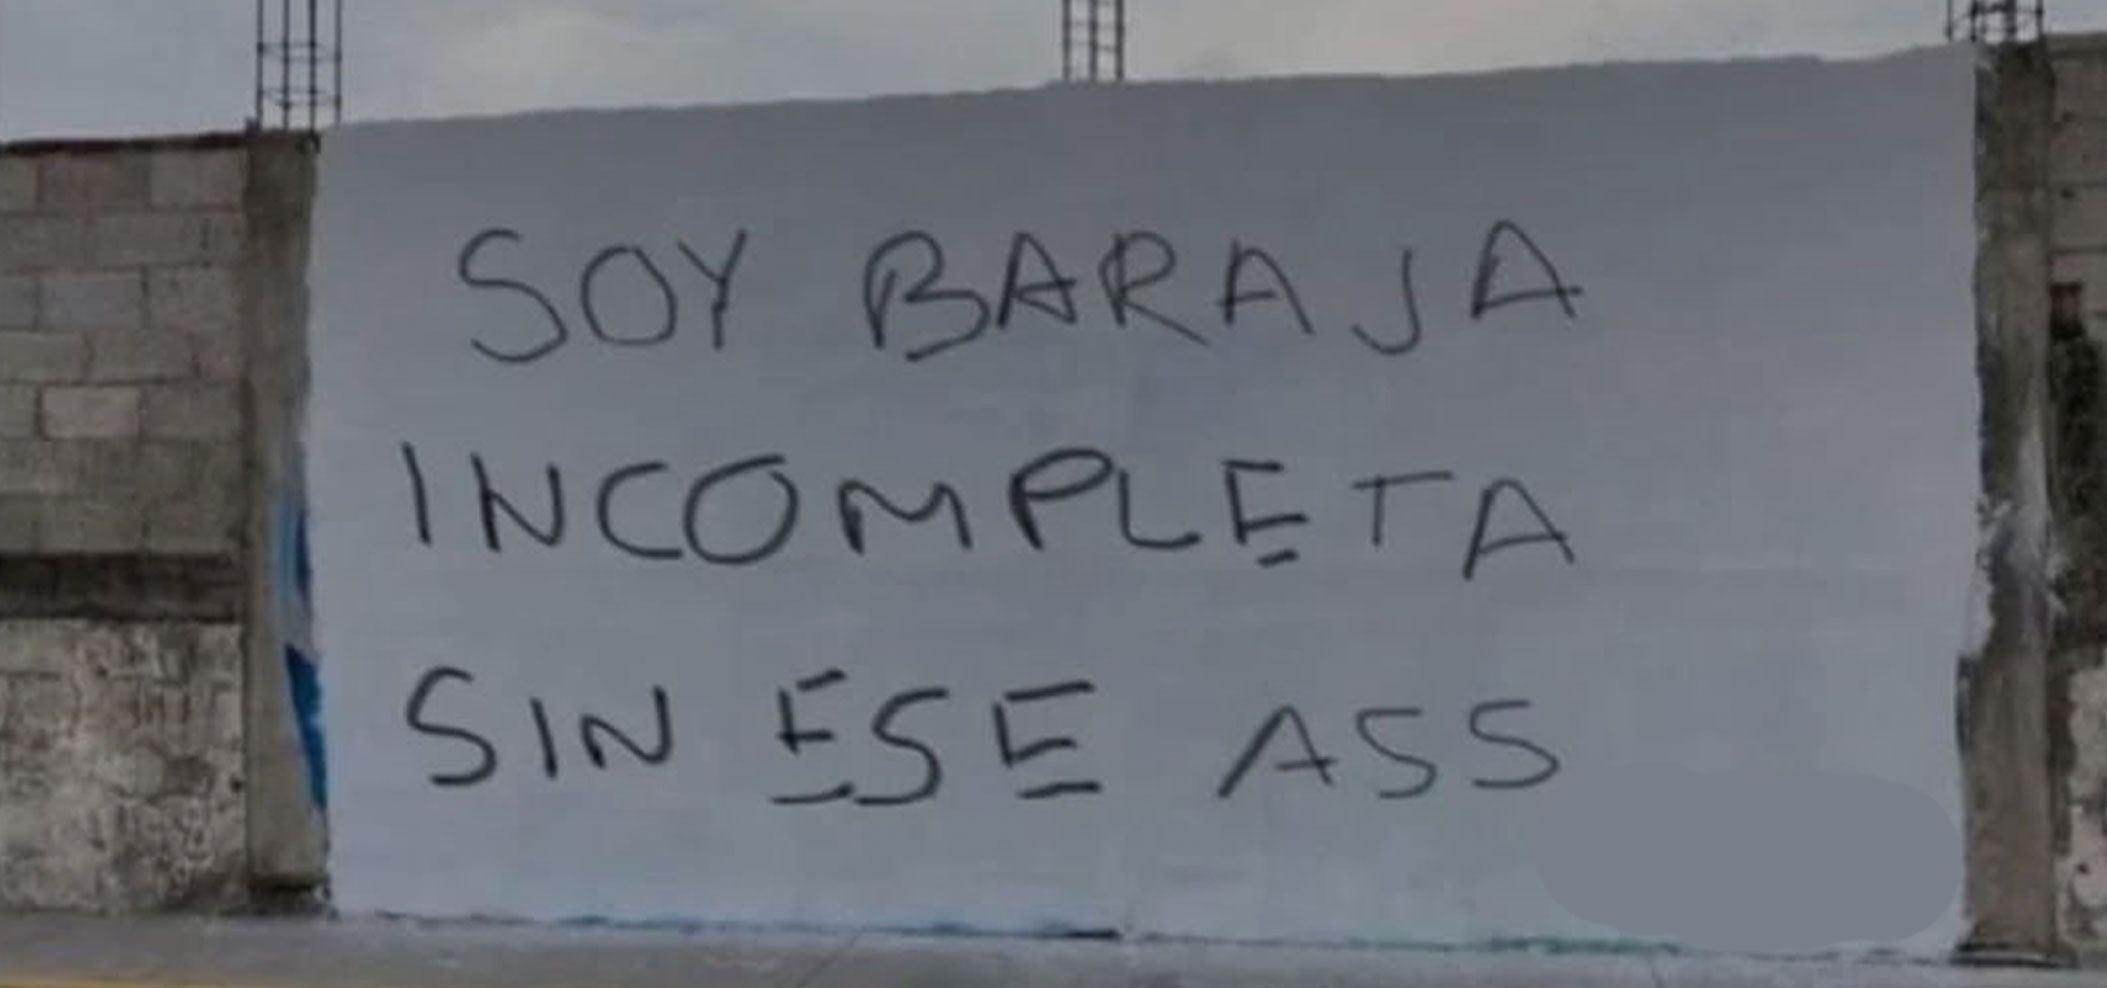 SOY BARAJA
INCOMPLETA
SIN ESE ASS